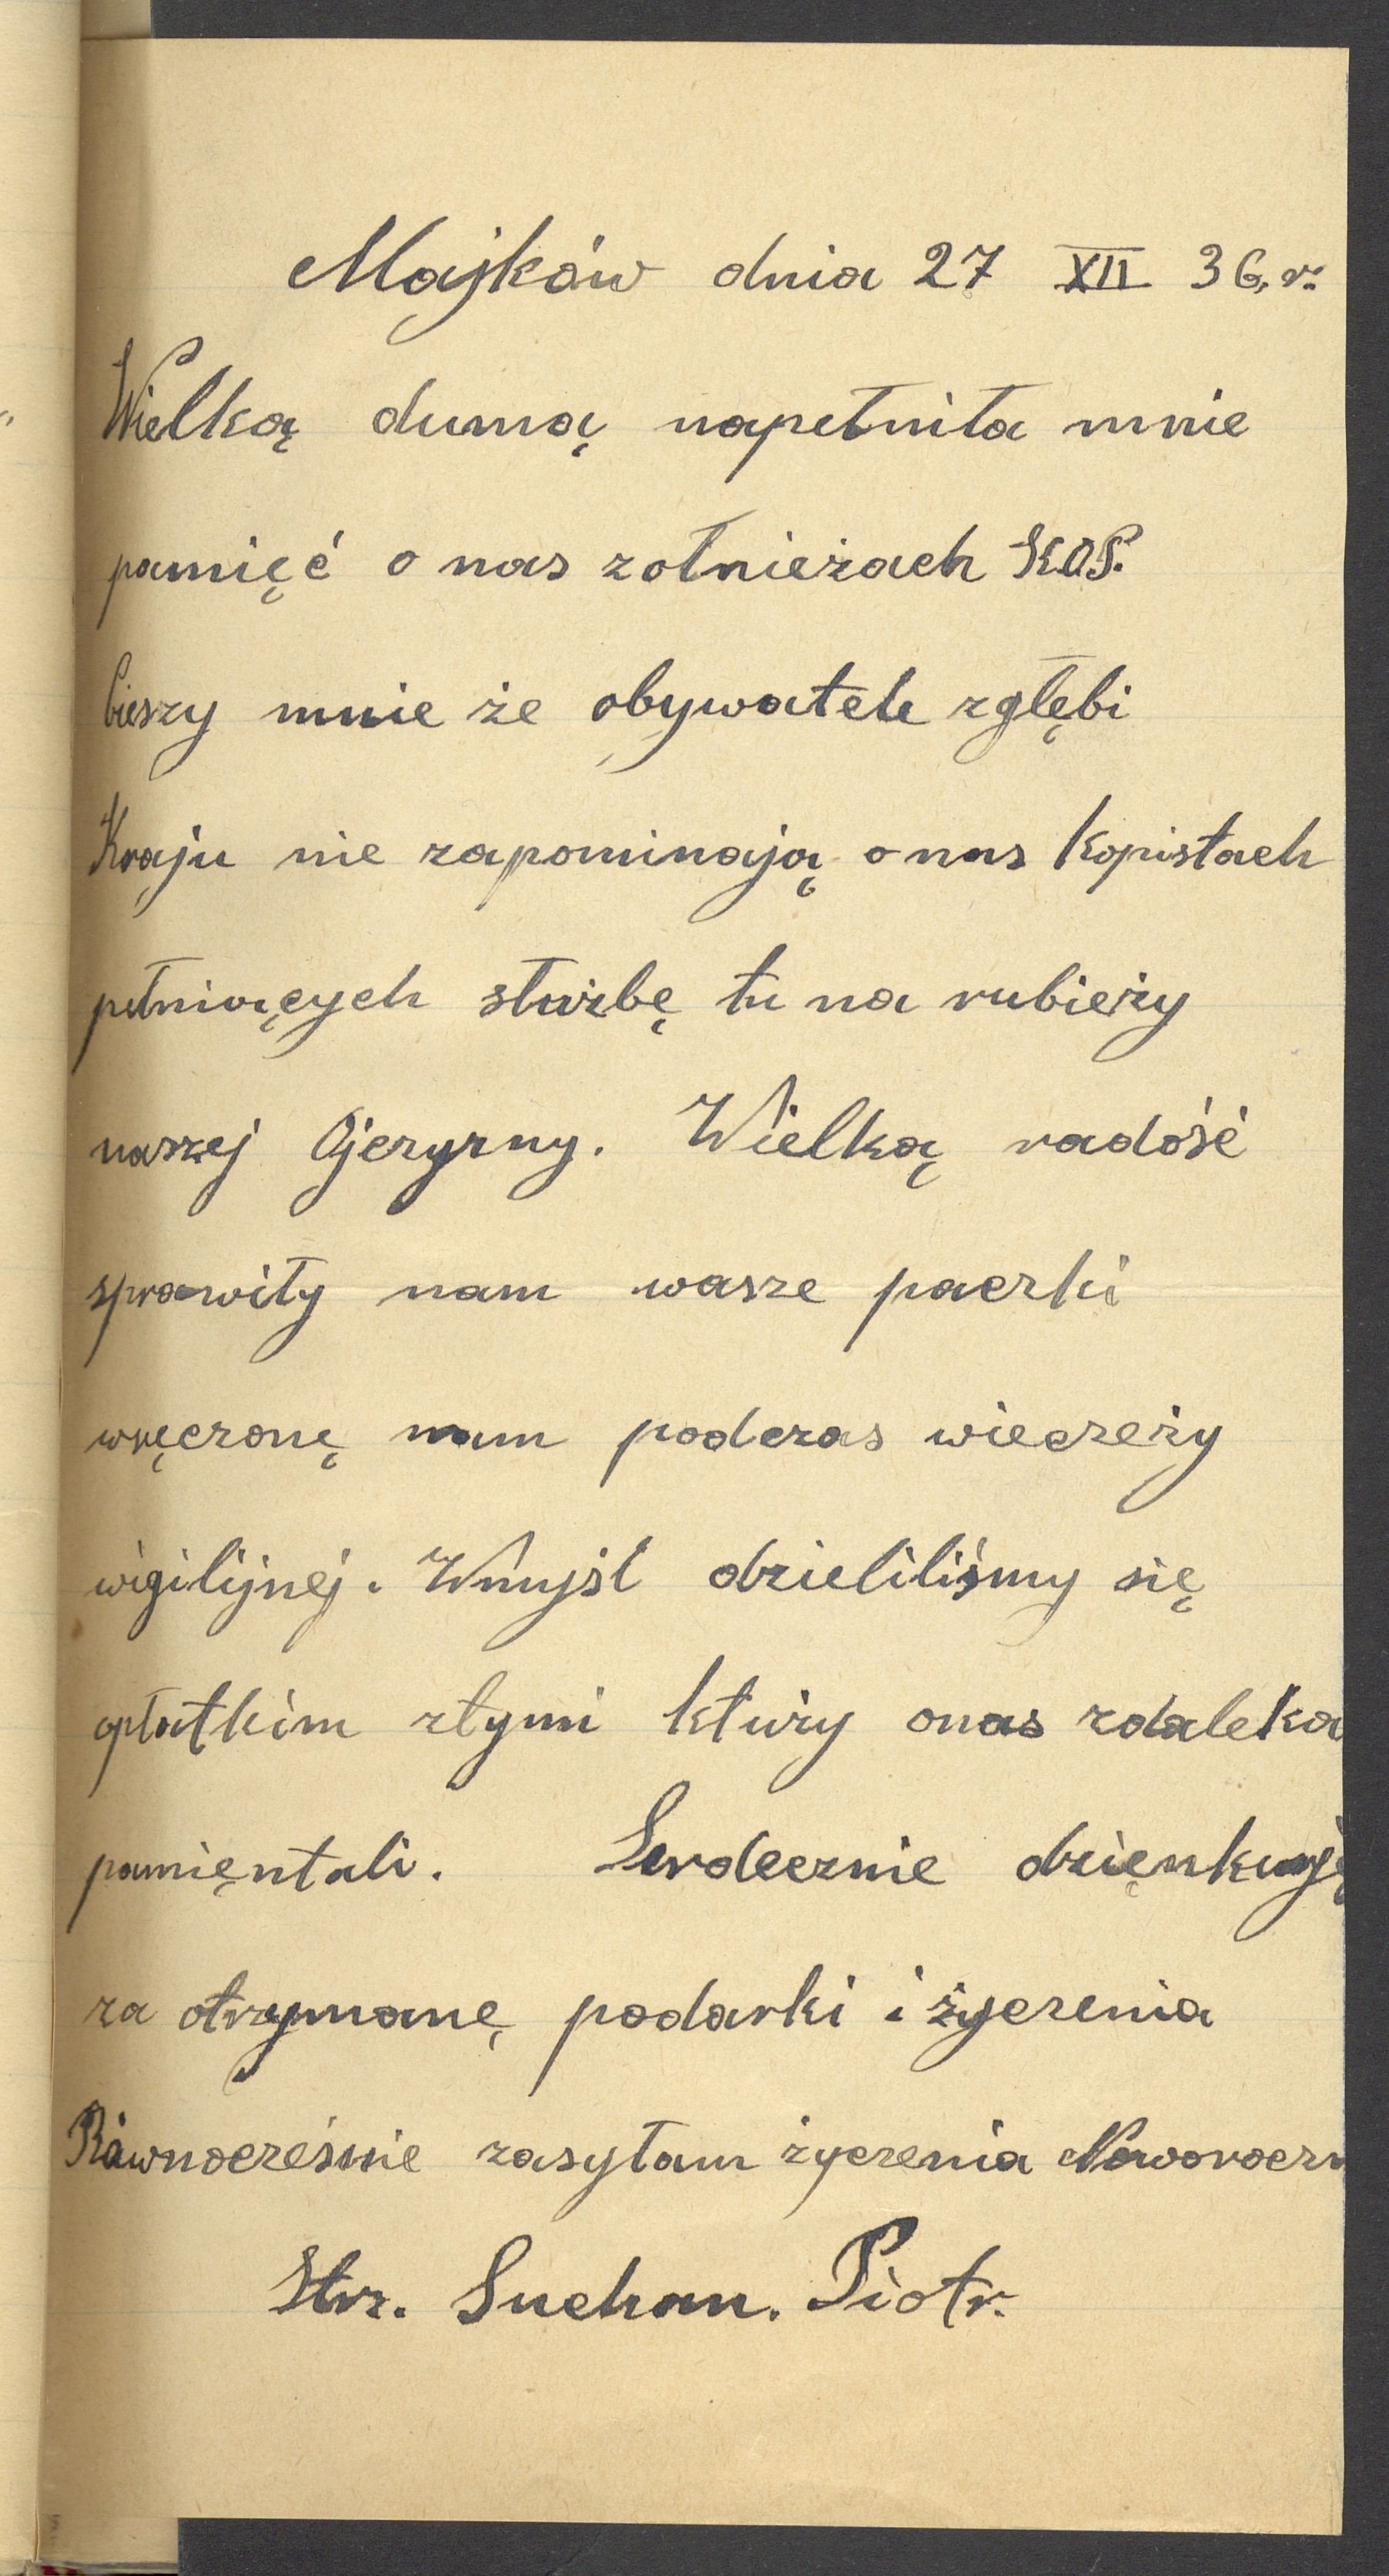 Majków dnia 27 XII 36, r.
Wielką dumą napełniła mnie
pamięć o nas zołnieżach K.O.P.
Cieszy mnie że obywatele zgłębi
Kraju nie zapominają o nas Kopistach
pełniących służbę tu na rubieży
naszej Ojczyzny. Wielką radość
sprawiły nam wasze paczki
wręczonę nam podczas wieczeży
wigilijnej. Wmyśl dzieliliśmy się
opłatkim ztymi ktury onas zdaleka
pamiętali. Serdecznie dzięnkuję
za otrzymanę podarki i życzenia
Równocześnie zasyłam życzenia Noworoczn
Strz. Suchan. Piotr.